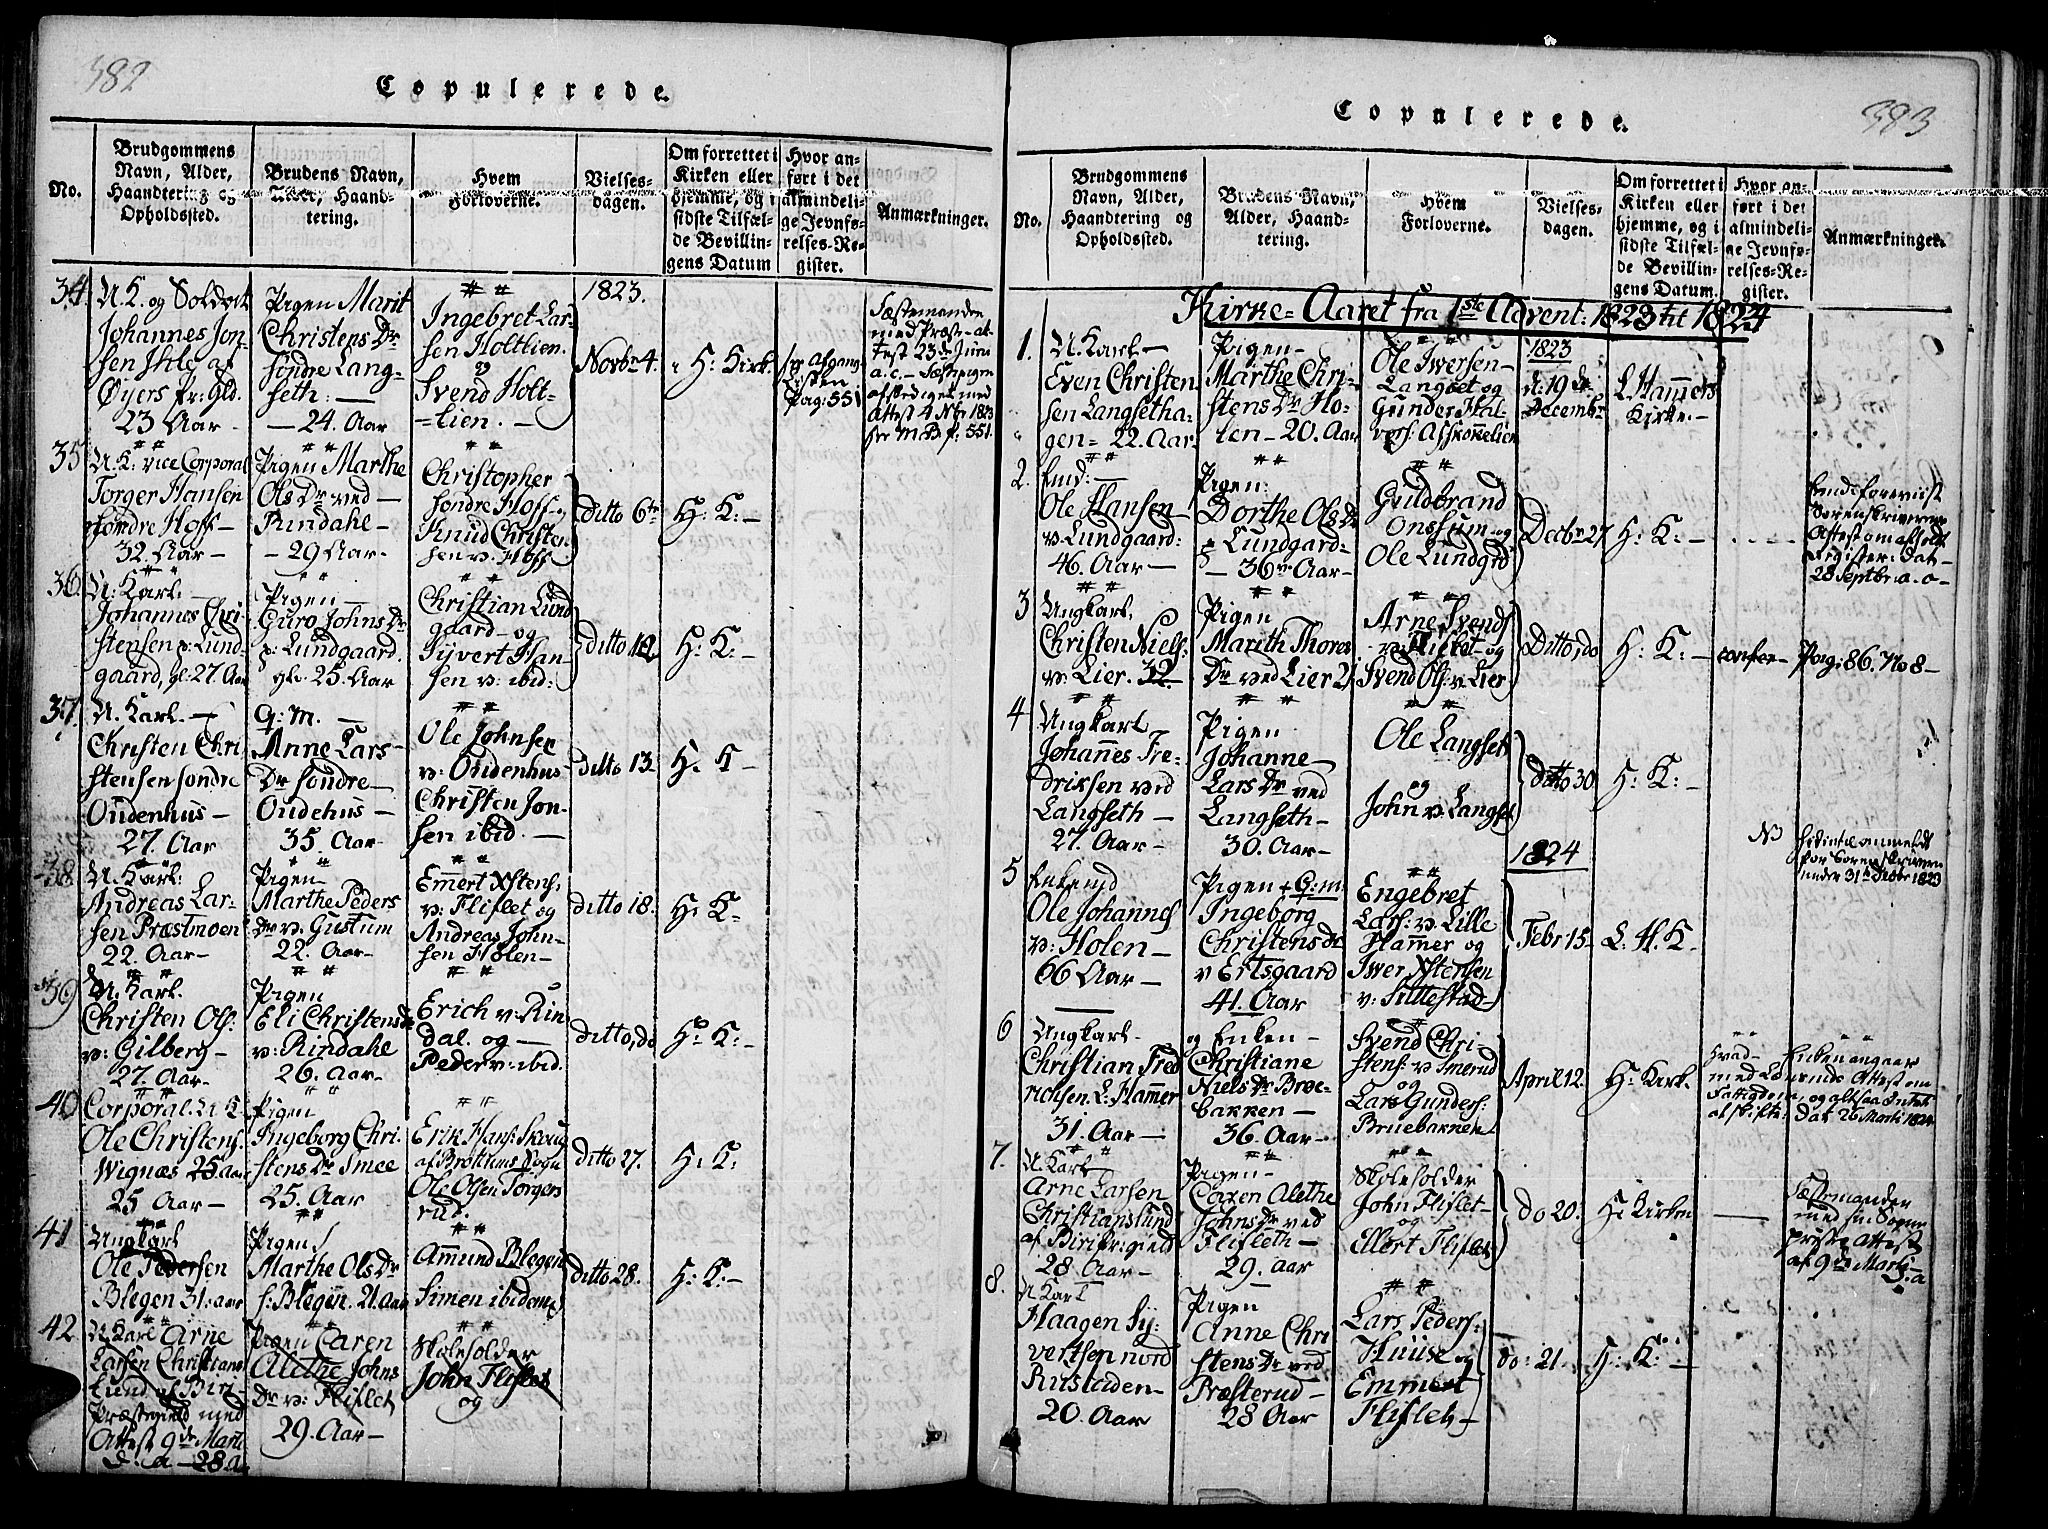 382
Copulerede.
No.
Brudgommens
Navn, Alder,
Haandtering og
Opholdssted.
Brudens Navn,
Alder, Haand-
tering.
Hvem
Forloverne.
Vielses-
dagen.
Om forrettet i
Kirken eller
hjemme, og i
sidste Tilfæl-
de Bevillin-
gens Datum
Hvor an-
ført i det
almindeli-
ge Jevnfø-
relses-Re-
gister.
Anmærkninger.
34
U.K. og Soldat
Johannes Jon-
sen Ihle af
Øyers pr: gld.
23 Aar
Pigen Marit
Christens Dr
søndre Lang-
seth: —
— 24. Aar
Ingebret Lar-
sen Holtlien.
og
Svend Holt-
=lien. —
1823.
Novbr 4.
H: Kirk.
afgang
Listen
Pag: 551
Fæstemanden
med Præste-at-
test 23de Juni
a.c. — Fæstepigen
afsediget med
attest 4 Nbr 1823
see M.B. p: 551.
35
U.K: vice Corporal
Torger Hansen
søndre Hoff —
32. Aar —
Pigen Marthe
Ols Dr ved —
Rindahl —
— 29 Aar —
Christopher
søndre Hoff og
Knud Christen
sen v: Hoff
Ditto 6te
H: K: —
36
U: Karl. —
Johannes Chri-
stensen p: Lund-
gaard, gl: 27. Aar
Pigen —
Guro Johns Dr
p: Lundgaard.
gl: 25. Aar
Christian Lund
gaard — og
Syvert Han-
sen v: ibid:
ditto 12
H: K: —
37
U. Karl. —
Christen Chri
stensen søndre
Oudenhus —
27. Aar
G: M. —
Anne Lars —
Dr søndre —
Oudehus —
35. Aar
Ole Johnsen
v: Oudenhus
Christen Jon-
sen ibid. —
ditto 13.
H: K —
38
U. Karl:
Andreas Lar-
sen Præstmoen
22. Aar —
Pigen
Marthe Peders
Dr v: Gustum
22. Aar —
Emert Xstens,
v: Fliflet og
Andreas John-
sen Holen —
ditto 18.
H: K —
39
U. Karl.
Christen Ols:
v: Gilberg —
27. Aar —
Pigen
Eli Christens dr
v: Rindahl
26. Aar —
Erich v: Rin
dal. og —
Peder v: ibid.
ditto, do
H: K: —
40
Corporal. U K
Ole Christens.
Wignæs 25 aar
25 Aar —
Pigen
Ingeborg Chri-
stens Dr Smee
25. Aar
Erik Hans: Skoug
af Brøttums Sogn
Ole Olsen Torgers
rud.
ditto 27.
H: K:
41
Ungkarl
Ole Pedersen
Blegen 31: aar
Pigen
Marthe Ols Dr
s: Blegen. 21. aar
Amund Blegen
Simen ibidem
ditto 28.
H: K: —
42
U. Karl Arne
Larsen Christians
lund af Biri —
Præstegield med
Attest 9de Marti
d. a — 28 a.
Pigen Caren
Alethe Johns
Dr v: Fliflet
29. Aar —
Skoleholder
John Fliflet
og
383
Copulerede.
No.
Brudgommens
Navn, Alder,
Haandtering og
Opholdssted.
Brudens Navn,
Alder, Haand-
tering.
Hvem
Forloverne.
Vielses-
dagen.
Om forrettet i
Kirken eller
hjemme, og i
sidste Tilfæl-
de Bevillin-
gens Datum.
Hvor an-
ført i det
almindeli-
ge Jevnfø-
relses-Re-
gister.
Anmærkninger.
Kirke-Aaret fra 1ste Advent: 1823 til 1824
1.
U. Karl —
Even Christen
sen Langsetha-
gen = 22. Aar
Pigen —
Marthe Chri-
stens Dr Ho-
len — 20. Aar
Ole Iwersen —
Langset og
Gunder Hal-
vors: Asskokkelien
1823
d: 19de
Decembr
L. Hammers
Kirke. —
2.
Ole Hansen —
v: Lundgaard:
46. Aar —
Pigen:
Dorthe Ols Dr
p Lundgard =
— 36 Aar —
Guldbrand
Onssum og
Ole Lundgrd
Decbr 27
H: K: —
Sorenskriverens
Attest om afholdt
Register: dat
28 Septbr. a. o —
3
Ungkarl.
Christen Niels:
v: Lier. 32.
Pigen
Marith Thores
Dr ved Lier 21
Arne Svends
v: Flisket — og
Svend Ols: v: Lier
Ditto, do
H: K: —
confer —
Pag: 86. No 8 —
4
Ungkarl
Johannes Fre-
driksen ved
Langseth —
27. Aar —
Pigen
Johanne —
Lars Dr ved
Langseth —
30. Aar —
Ole Langset
og
John v: Langset
ditto 30
H: K: —
5
Enkemd
Ole Johannes
v: Holen —
66 Aar —
Pigen + G: m:
Ingeborg
Christens dr
v Ertsgaard
41. Aar
Engebret
Lars: v. Lille
Hammer og
Iwer Xstensen
v: Sillestad —
1824
Febr 15.
L. H. K —
NB
for Sorenskriveren
under 31te Decbr 1823
6
Ungkarl —
Christian Fred
richsen. L: Hammer
31. Aar —
og Enken —
Christiane
Niels Dr Brue-
bakken —
36. Aar —
Svend Chri-
stens: v Smerud
og
Lars Gunders:
Bruebakken
April 12.
H: Kirk.
Hvad
Enken angaar
med Lensmds Attest om
Fattigdom, og altsaa Intet
at skifte:
dat 26 Marti 1824
7.
U. Karl
Arne Larsen
Christianslund
af Biri pr: gield
28 Aar —
Pigen —
Caren Alethe
Johns Dr ved
Flifleth —
29. Aar
Skoleholder
John Fliflet —
og
Ellert Fliflet
do 20.
H: Kirken
Fæstemanden
med sin Sogne
præsts Attest
af 9de Marti
d: a
8.
U Karl
Haagen Sy-
vertsen nord
Rustaden —
20. Aar
Pigen
Anne Chri
stens Dr ved
Præsterud —
28 Aar
Lars Peders:
Huuse og
Emmert
Fliflet —
do: 21.
H: K: —